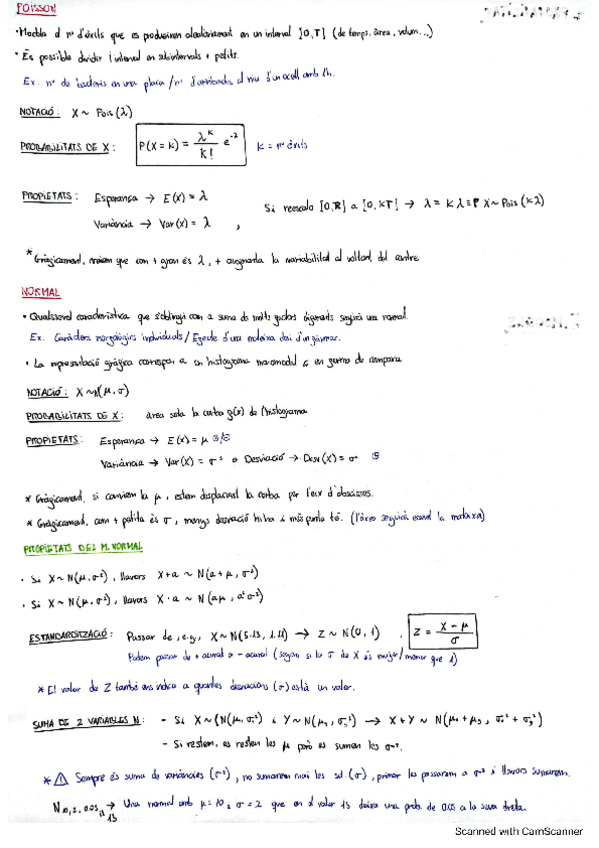 POISSON
• Modela el nº d'èxits que es produeixen aleatòriament en un interval [0,T] (de temps, àrea, volum...)
• És possible dividir l'interval en subintervals + petits.
Ex: nº de bacteris en una placa / nº d'arribades al niu d'un ocell amb 1h.
NOTACIÓ: X ~ Pois (λ)
PROBABILITATS DE X: P(X = k) = λ^k / k! e^-λ K = nº èxits
PROPIETATS: Esperança → E(X) = λ
Si reescalo [0,T] a [0,kT] → λ = kλ X ~ Pois (kλ)
Variància → Var(X) = λ,
* Gràficament, veiem que com + gran és λ, + augmenta la variabilitat al voltant del centre
NORMAL
• Qualssevol característica que s'obtingui com a suma de molts factors seguirà una normal.
Ex. Caràcters morfològics individuals / d'una mateixa
• La representació gràfica correspon a un histograma unimodal i en forma de campana
NOTACIÓ: X ~ N(μ, σ)
PROBABILITATS DE X: àrea sota la corba g(x) de l'histograma
PROPIETATS: Esperança → E(X) = μ
Variància → Var(X) = σ² o Desviació → Desv(X) = σ
* Gràficament, si canviem la μ, estem desplaçant la corba per l'eix d'abscisses.
* Gràficament, com + petita és σ, menys desviació hi ha i més punta té. (l'àrea seguirà essent la mateixa)
PROPIETATS DEL M. NORMAL
• Si X ~ N(μ, σ²), llavors X+a ~ N(a+μ, σ²)
• Si X ~ N(μ, σ²), llavors X·a ~ N(aμ, a²σ²)
ESTANDARDITZACIÓ: Passar de, e.g., X ~ N(5.15, 1.11) → Z ~ N(0, 1). Z = X - μ / σ
Podem passar de + a - (segons si la σ de X és major/menor que 1)
* El valor de Z també ens indica a quantes desviacions (σ) està un valor.
SUMA DE 2 VARIABLES N: - Si X ~ (N(μ₁, σ₁²) i Y ~ N(μ₂, σ₂²) → X + Y ~ N(μ₁ + μ₂, σ₁² + σ₂²)
- Si restem, es resten les μ però es sumen les σ².
* ⚠ Sempre és suma de variàncies (σ²), no sumarem mai les sd. (σ), primer les passarem a σ² i llavors sumarem.
N 10, 2, 0.05 → Una normal amb μ = 10 i σ = 2 que en el valor 13 deixa una prob. de 0.05 a la seva dreta.
13
Scanned with CamScanner